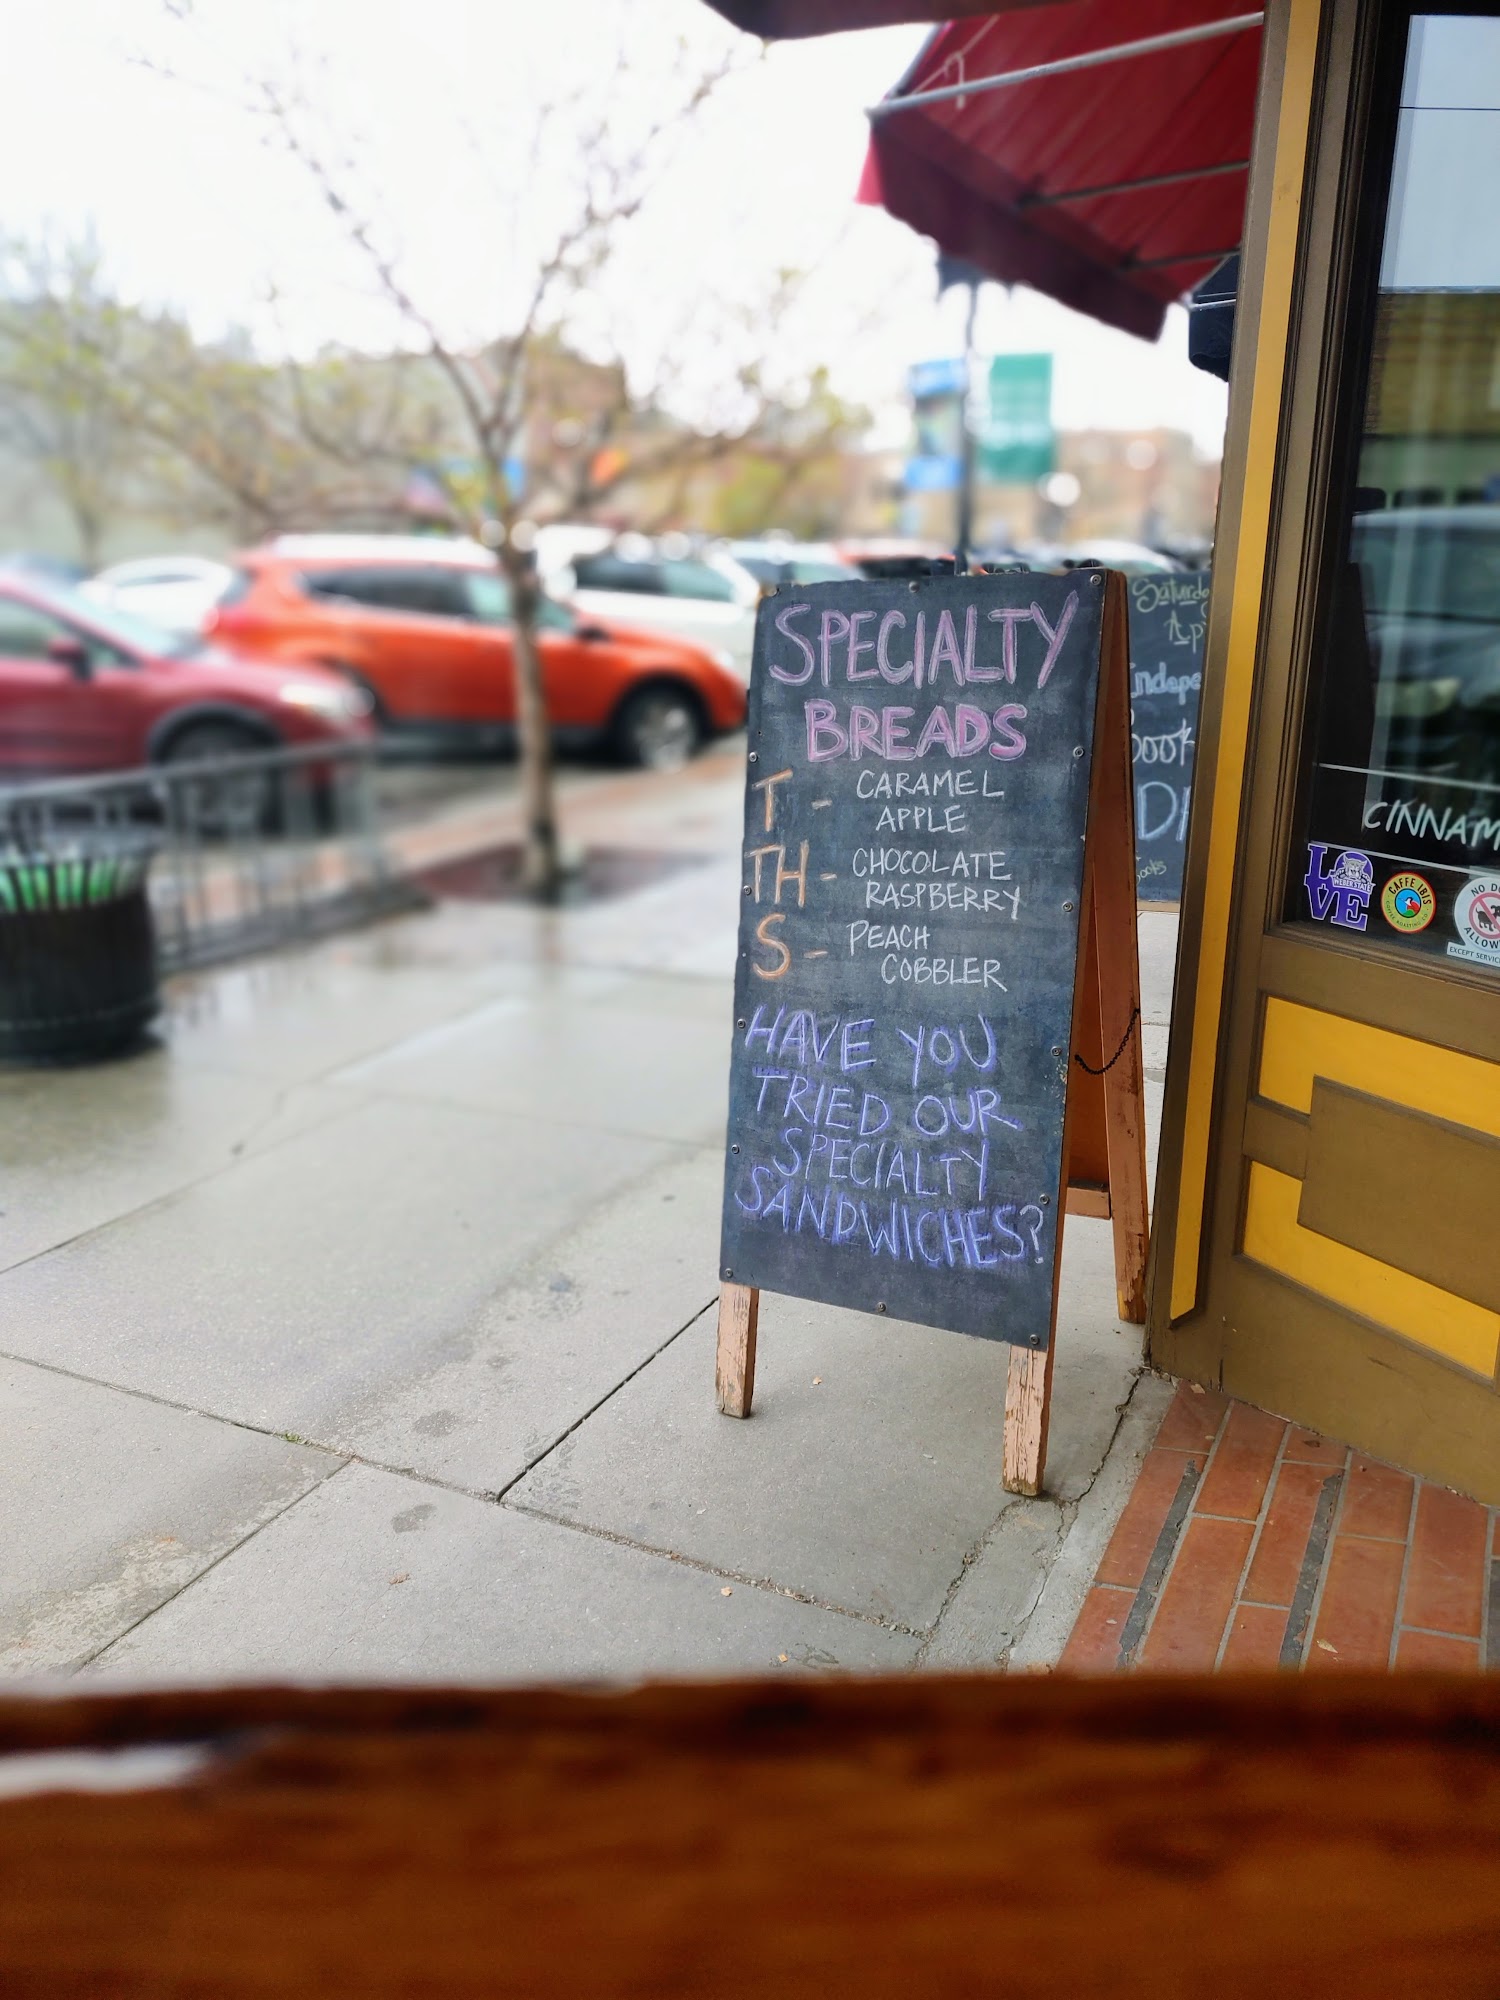 SPECIALTY
BREADS
T - CARAMEL
APPLE
TH - CHOCOLATE
RASPBERRY
S - PEACH
COBBLER
HAVE YOU
TRIED OUR
SPECIALTY
SANDWICHES?
CINNAM
LOVE
WEBER STATE
CAFFE IBIS
NO
ALLOW
EXCEPT SERVIC